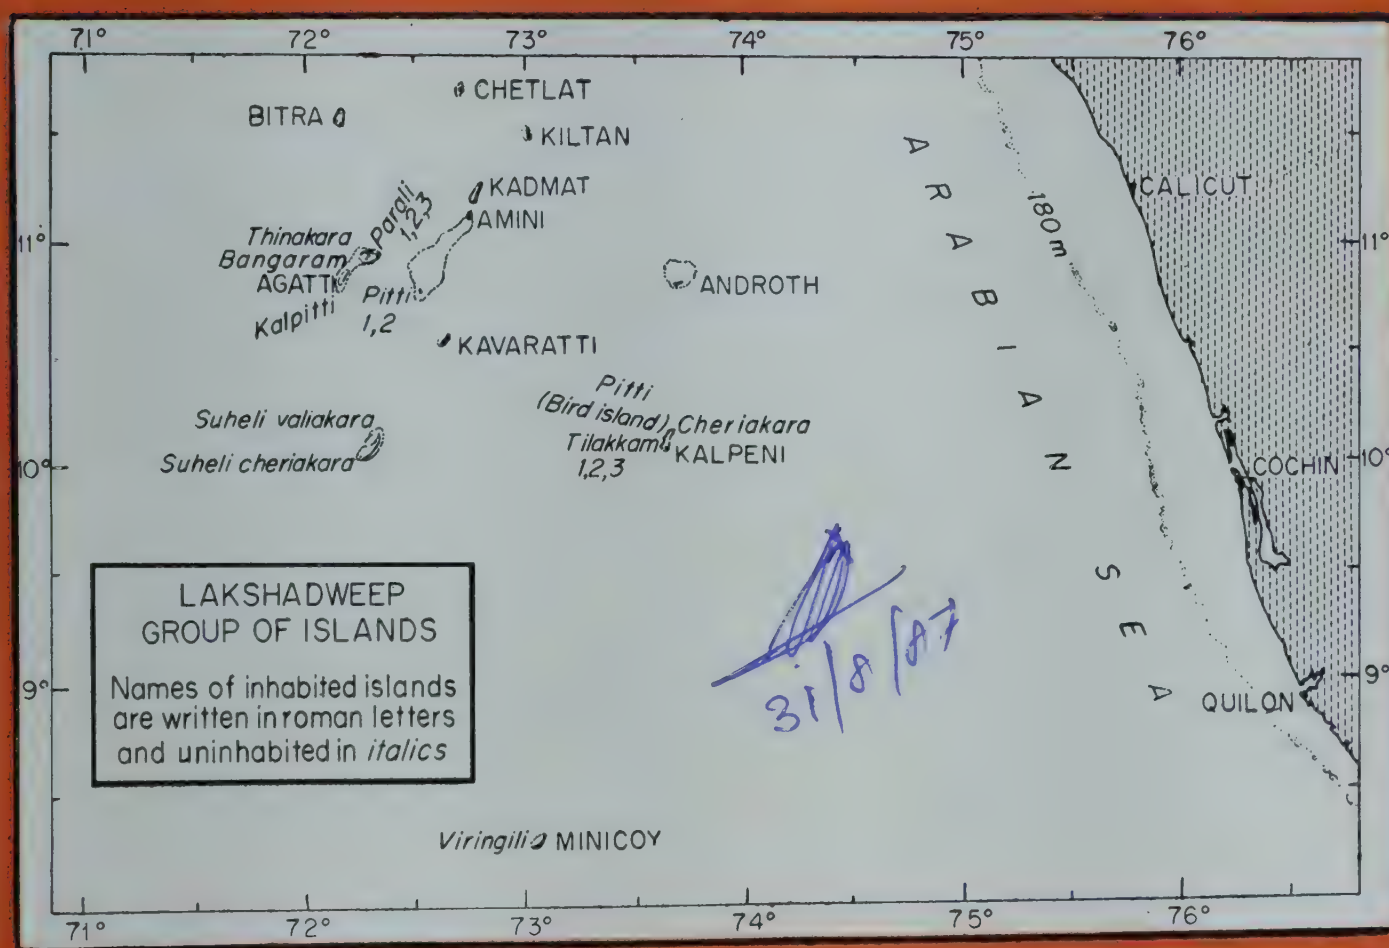 71° 72° 73° 74° 75° 76°
CHETLAT
BITRA
KILTAN
KADMAT
AMINI
Parali
1,2,3
Thinakara
Bangaram
AGATTI
Kalpitti
Pitti
1,2
ANDROTH
KAVARATTI
Pitti
(Bird island)
Cheriakara
Tilakkam
1,2,3
KALPENI
Suheli valiakara
Suheli cheriakara
ARABIAN SEA
180m
CALICUT
COCHIN
QUILON
11° 11°
10° 10°
9° 9°
LAKSHADWEEP
GROUP OF ISLANDS
Names of inhabited islands
are written in roman letters
and uninhabited in italics
31/8/87
Viringili
MINICOY
71° 72° 73° 74° 75° 76°